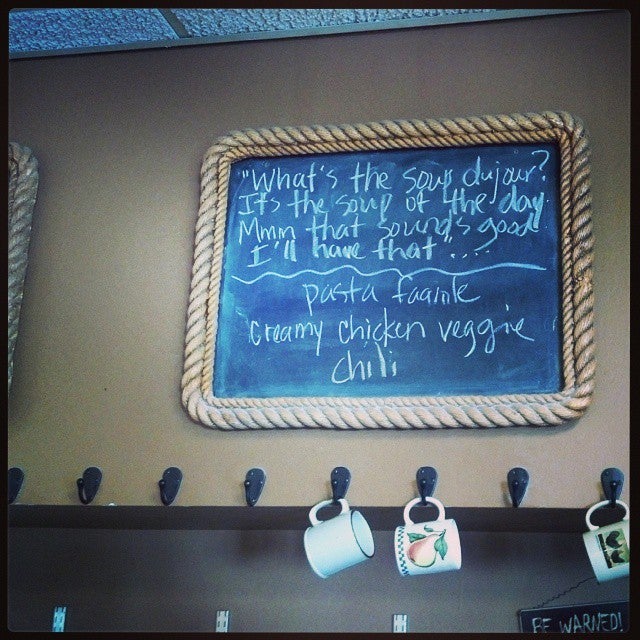 "What's the soup du jour?
It's the soup of the day.
Mmm that sounds good
I'll have that"....
pasta faggiole
creamy chicken veggie
chili
BE WARNED!